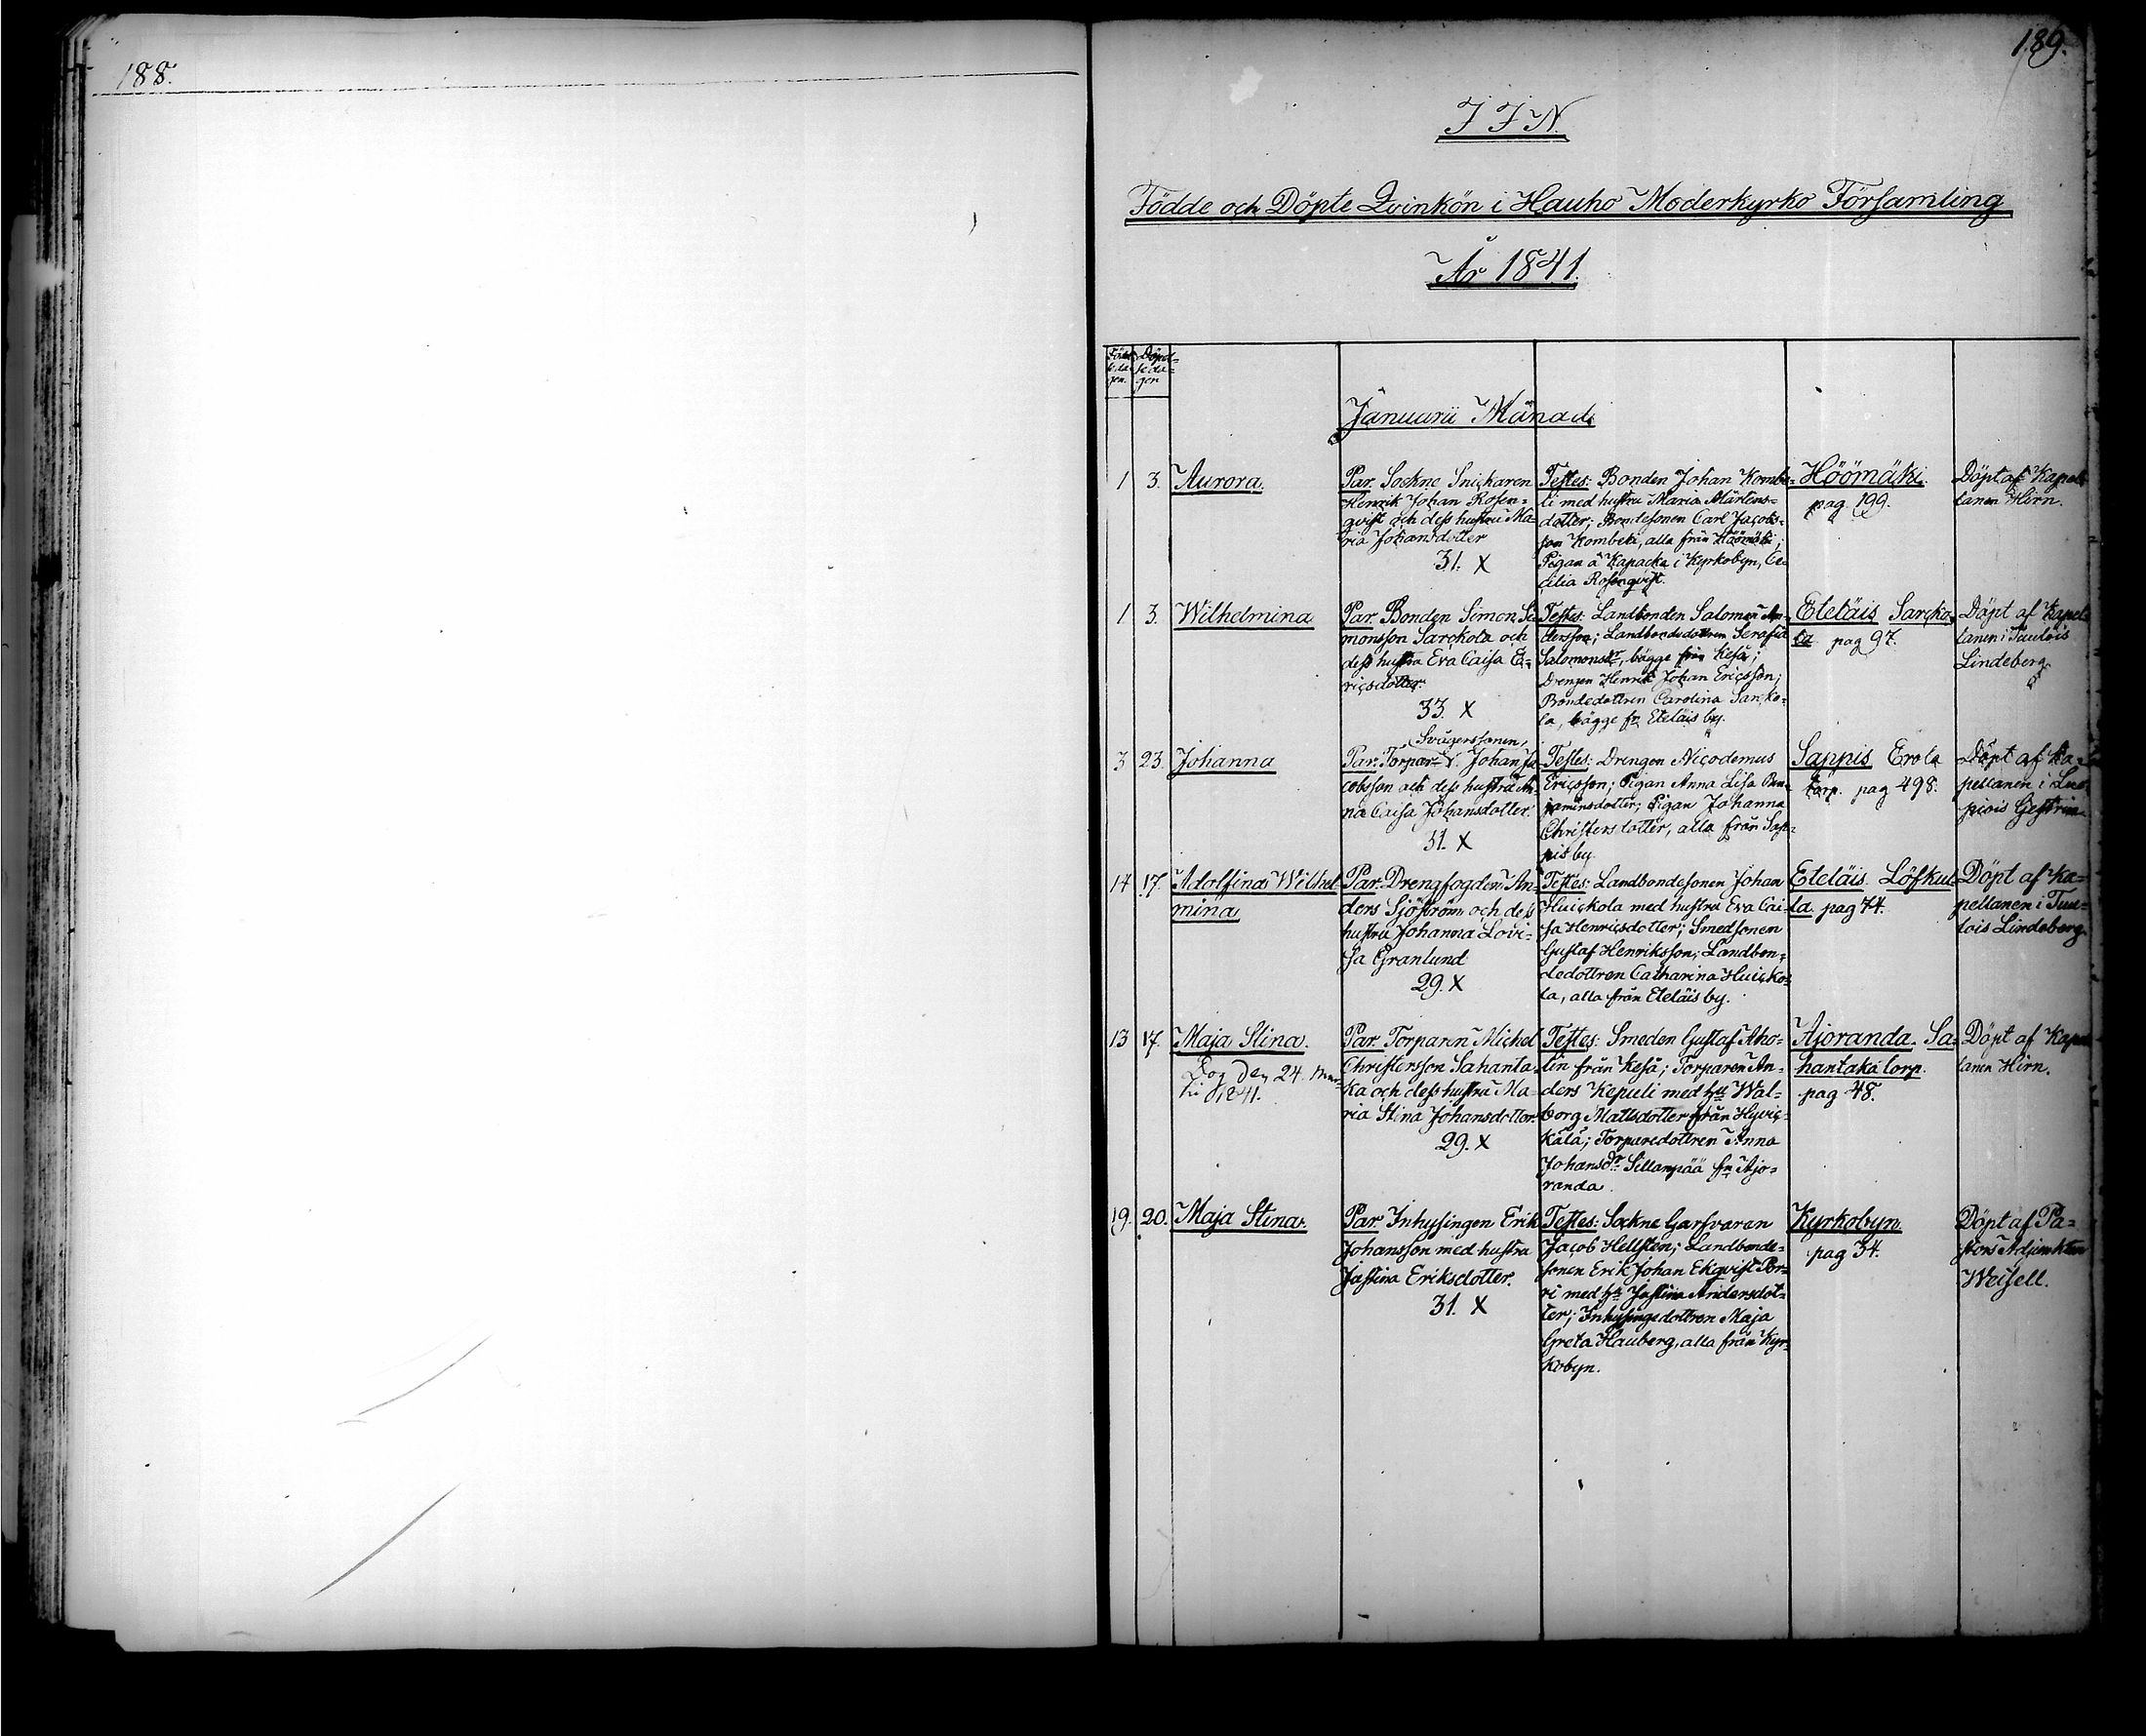 188.
189.
J J N.
Födde och Döpte Qvinkön i Hauho Moderkyrko Församling
År 1841.
Födel-
seda-
gen.
Döpel-
seda-
gen
Januarii Månad
1
3.
Aurora.
Par. Sockne Snickaren
Henrik Johan Rosen-
qvist och dess hustru Ma-
ria Johansdotter
31. X
Testes: Bonden Johan Kombe-
li med hustru Maria Mårtens-
dotter; Bondesonen Carl Jacobs-
son Kombeli, alla från Höömäki;
Pigan å Kapacka i Kyrkobyn, Ce-
cilia Rosenqvist.
Höömäki.
pag 199.
Döpt af Kapel-
lanen Hirn.
1
3.
Wilhelmina
Par. Bonden Simon Si-
monsson Sarckola och
dess hustru Eva Caisa E-
ricsdotter.
33. X
Testes: Landbonden Salomon An-
dersson; Landbondedottren Serafia
Salomonsdr, bägge från Kesä;
Drengen Henrik Johan Ericsson;
Bondedottren Carolina Sarcko-
la, bägge fr. Eteläis by.
Eteläis Sarcko-
la pag 97.
Döpt af Kapel-
lanen i Tuulois
Lindeberg.
3
23.
Johanna
Svågerssonen,
Par. Torpar V. Johan Ja-
cobsson och dess hustru An-
na Caisa Johansdotter.
31. X
Testes: Drengen Nicodemus
Ericsson; Pigan Anna Lisa Ben-
jaminsdotter; Pigan Johanna
Christersdotter, alla från Sap-
pis by.
Sappis Erola
torp. pag 498.
Döpt af Ka-
pellanen i Luo-
piois Gestrin.
14
17.
Adolfina Wilhel-
mina
Par. Drengfogden An-
ders Sjöström och dess
hustru Johanna Lovi-
sa Granlund
29. X
Testes: Landbondesonen Johan
Huickola med hustru Eva Cai-
sa Henricsdotter; Smedsonen
Gustaf Henriksson; Landbon-
dedottren Catharina Huicko-
la, alla från Eteläis by.
Eteläis. Löfkul-
la. pag 74.
Döpt af Ka-
pellanen i Tuu-
lois Lindeberg.
13
17.
Maja Stina.
Dog den 24 Mar-
tii 1841.
Par. Torparen Michel
Christersson Sahanta-
ka och dess hustru Ma-
ria Stina Johansdotter.
29. X
Testes: Smeden Gustaf Aho-
lin från Kesä; Torparen An-
ders Kepuli med hu Wal-
borg Mattsdotter från Hyvic-
kälä; Torparedottren Anna
Johansdr Sillanpää fr Ajo-
randa.
Ajoranda. Sa-
hantaka torp.
pag 48.
Döpt af Kapel-
lanen Hirn.
19.
20.
Maja Stina.
Par. Inhysingen Erik
Johansson med hustru
Justina Eriksdotter.
31. X
Testes: Sockne Garfvaren
Jacob Hellsten; Landbonde-
sonen Erik Johan Ekqvist Por-
ri med hu Justina Andersdot-
ter; Inhysingedottren Maja
Greta Hauberg, alla från Kyr-
kobyn.
Kyrkobyn.
pag 34.
Döpt af Pa-
stors Adjunkten
Weisell.